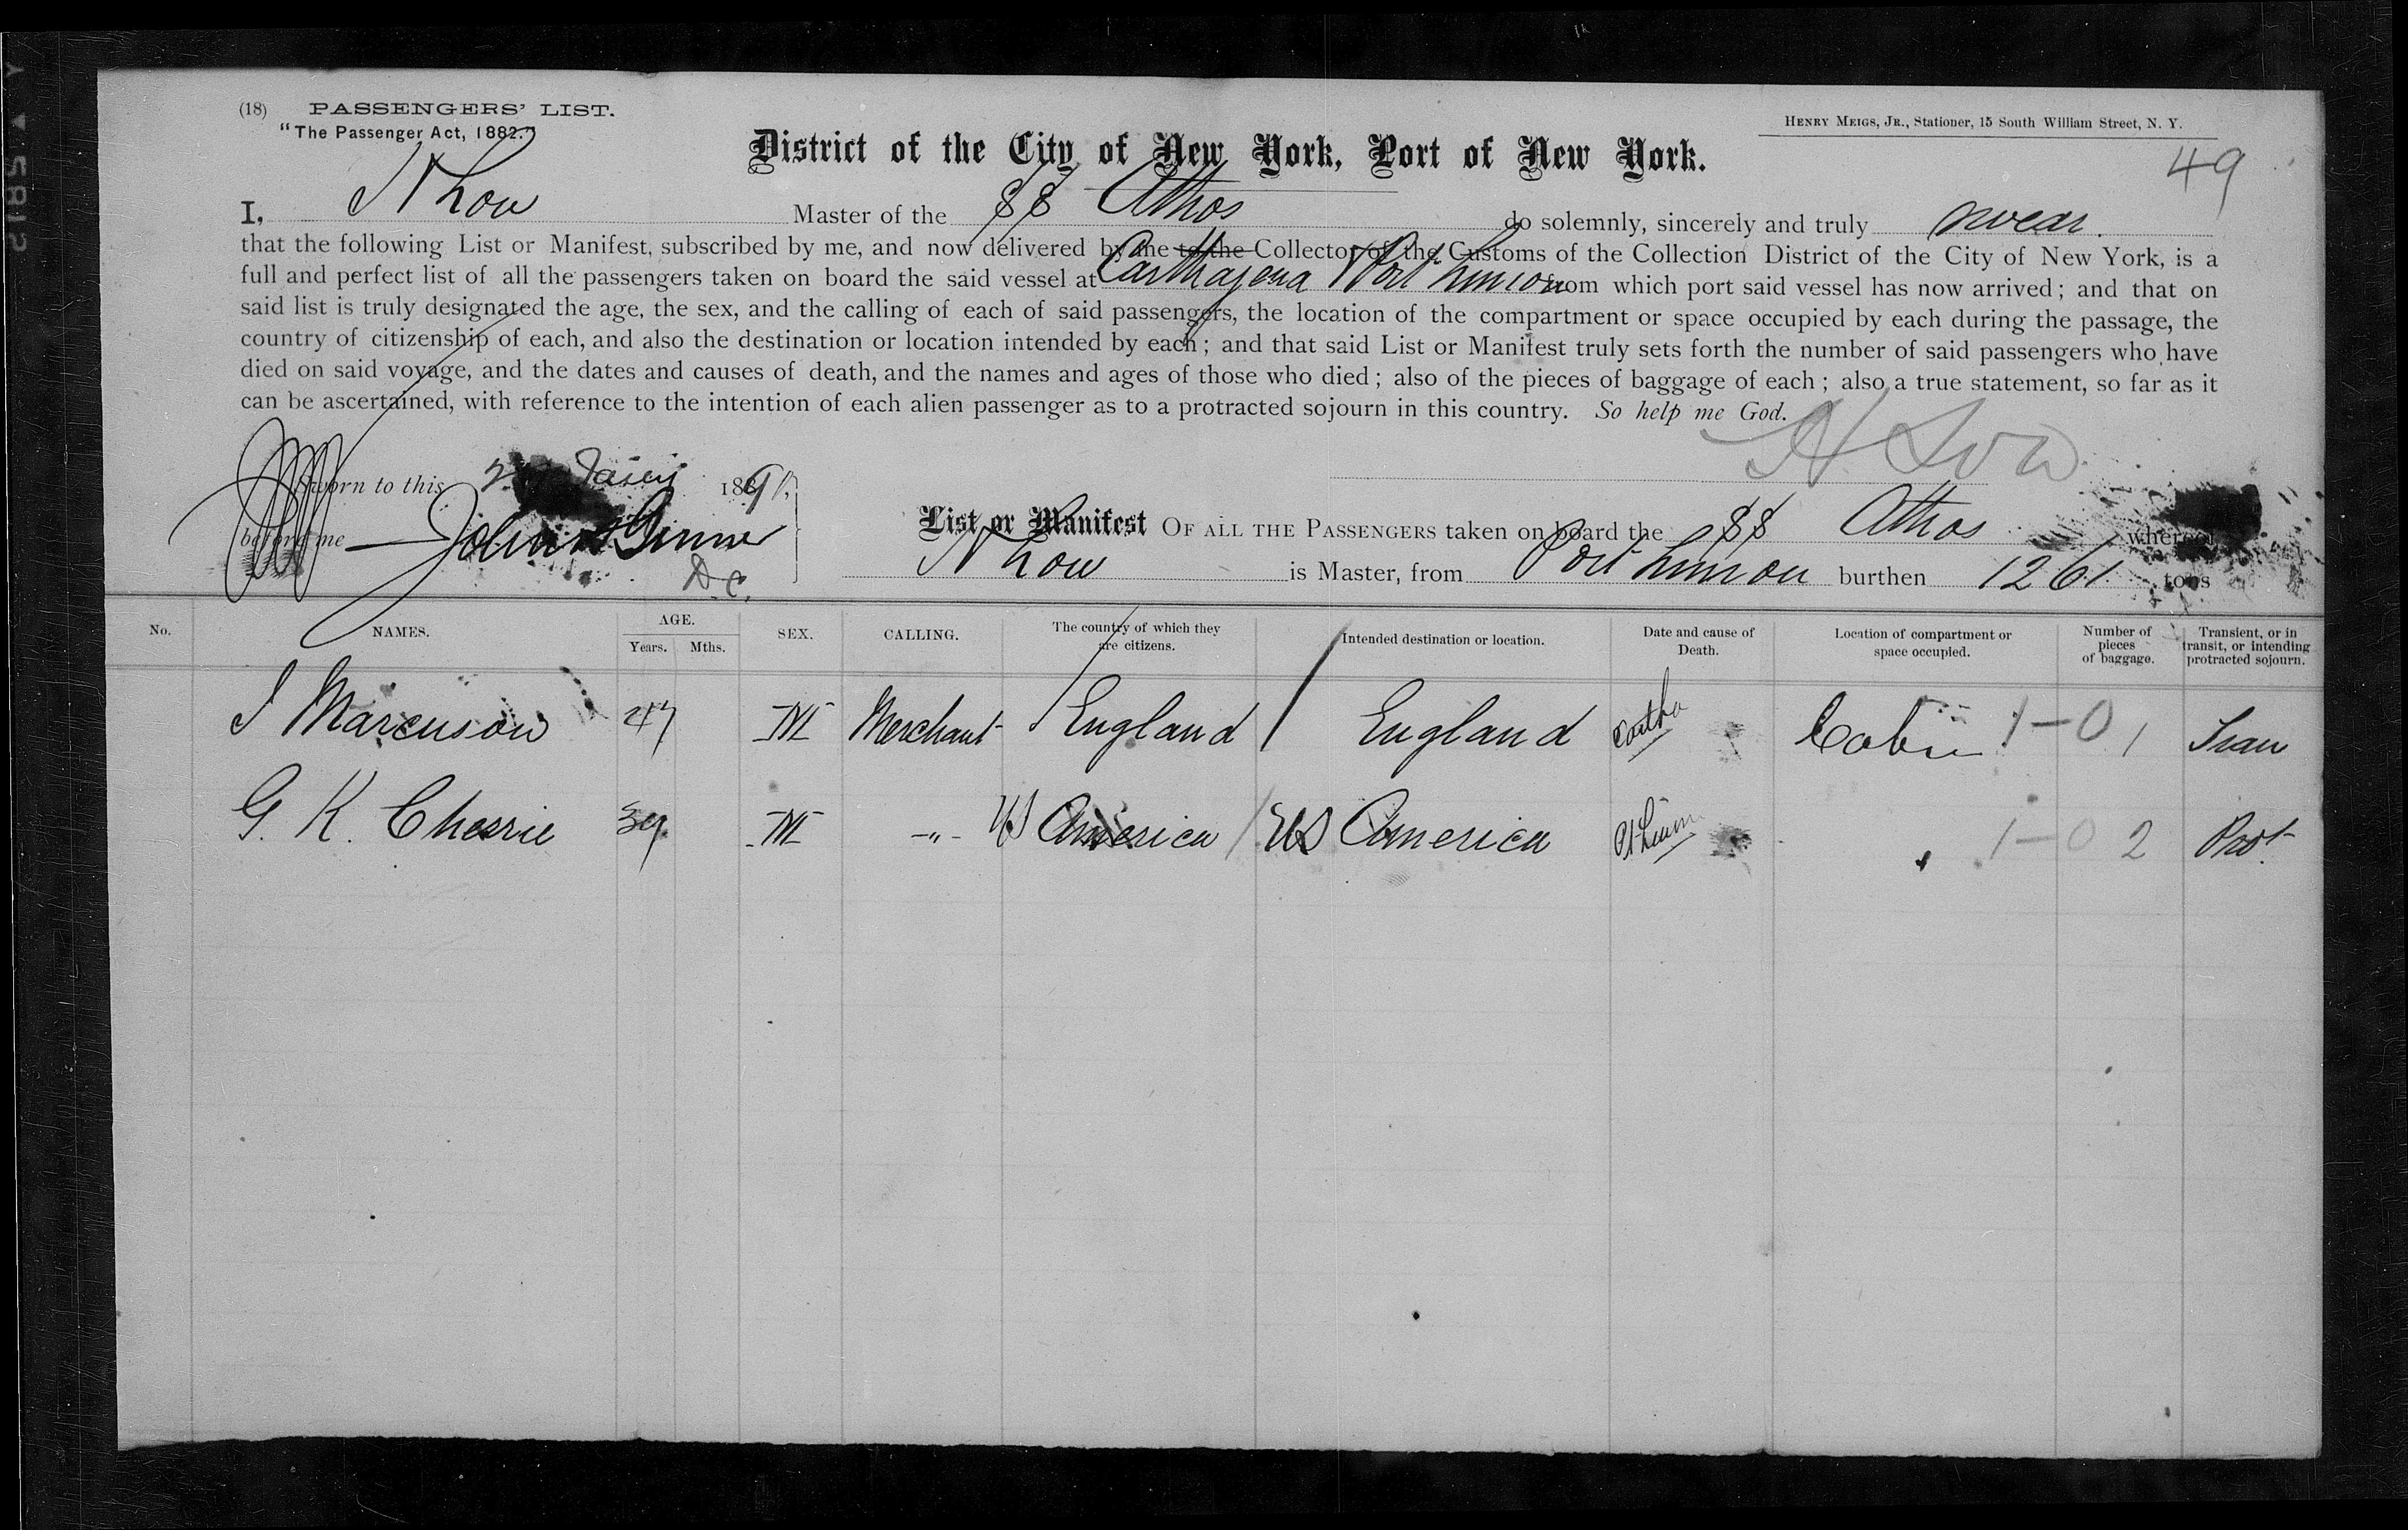 (18) PASSENGERS' LIST.
"The Passenger Act, 1882."
HENRY MEIGS, JR., Stationer, 15 South William Street, N. Y.
District of the City of New York, Port of New York.
49
I, Low Master of the SS Athos do solemnly, sincerely and truly swear.
that the following List or Manifest, subscribed by me, and now delivered by me to the Collector of the Customs of the Collection District of the City of New York, is a
full and perfect list of all the passengers taken on board the said vessel at Carthajena Port Limion from which port said vessel has now arrived; and that on
said list is truly designated the age, the sex, and the calling of each of said passengers, the location of the compartment or space occupied by each during the passage, the
country of citizenship of each, and also the destination or location intended by each; and that said List or Manifest truly sets forth the number of said passengers who have
died on said voyage, and the dates and causes of death, and the names and ages of those who died; also of the pieces of baggage of each; also a true statement, so far as it
can be ascertained, with reference to the intention of each alien passenger as to a protracted sojourn in this country. So help me God.
Low
Sworn to this 1891.
before me John
D.C.
List or Manifest OF ALL THE PASSENGERS taken on board the SS Athos whereof
Low is Master, from Port Limon burthen 1261 tons
No. NAMES. AGE. Years. Mths. SEX. CALLING. The country of which they are citizens. Intended destination or location. Date and cause of Death. Location of compartment or space occupied. Number of pieces of baggage. Transient, or in transit, or intending protracted sojourn.
Marcuson 47 M Merchant England England Cartha Cabin 1-0 1 Tran
G. K. Cherrie M -"- US America US America Pt Limon 1-0 2 Prot